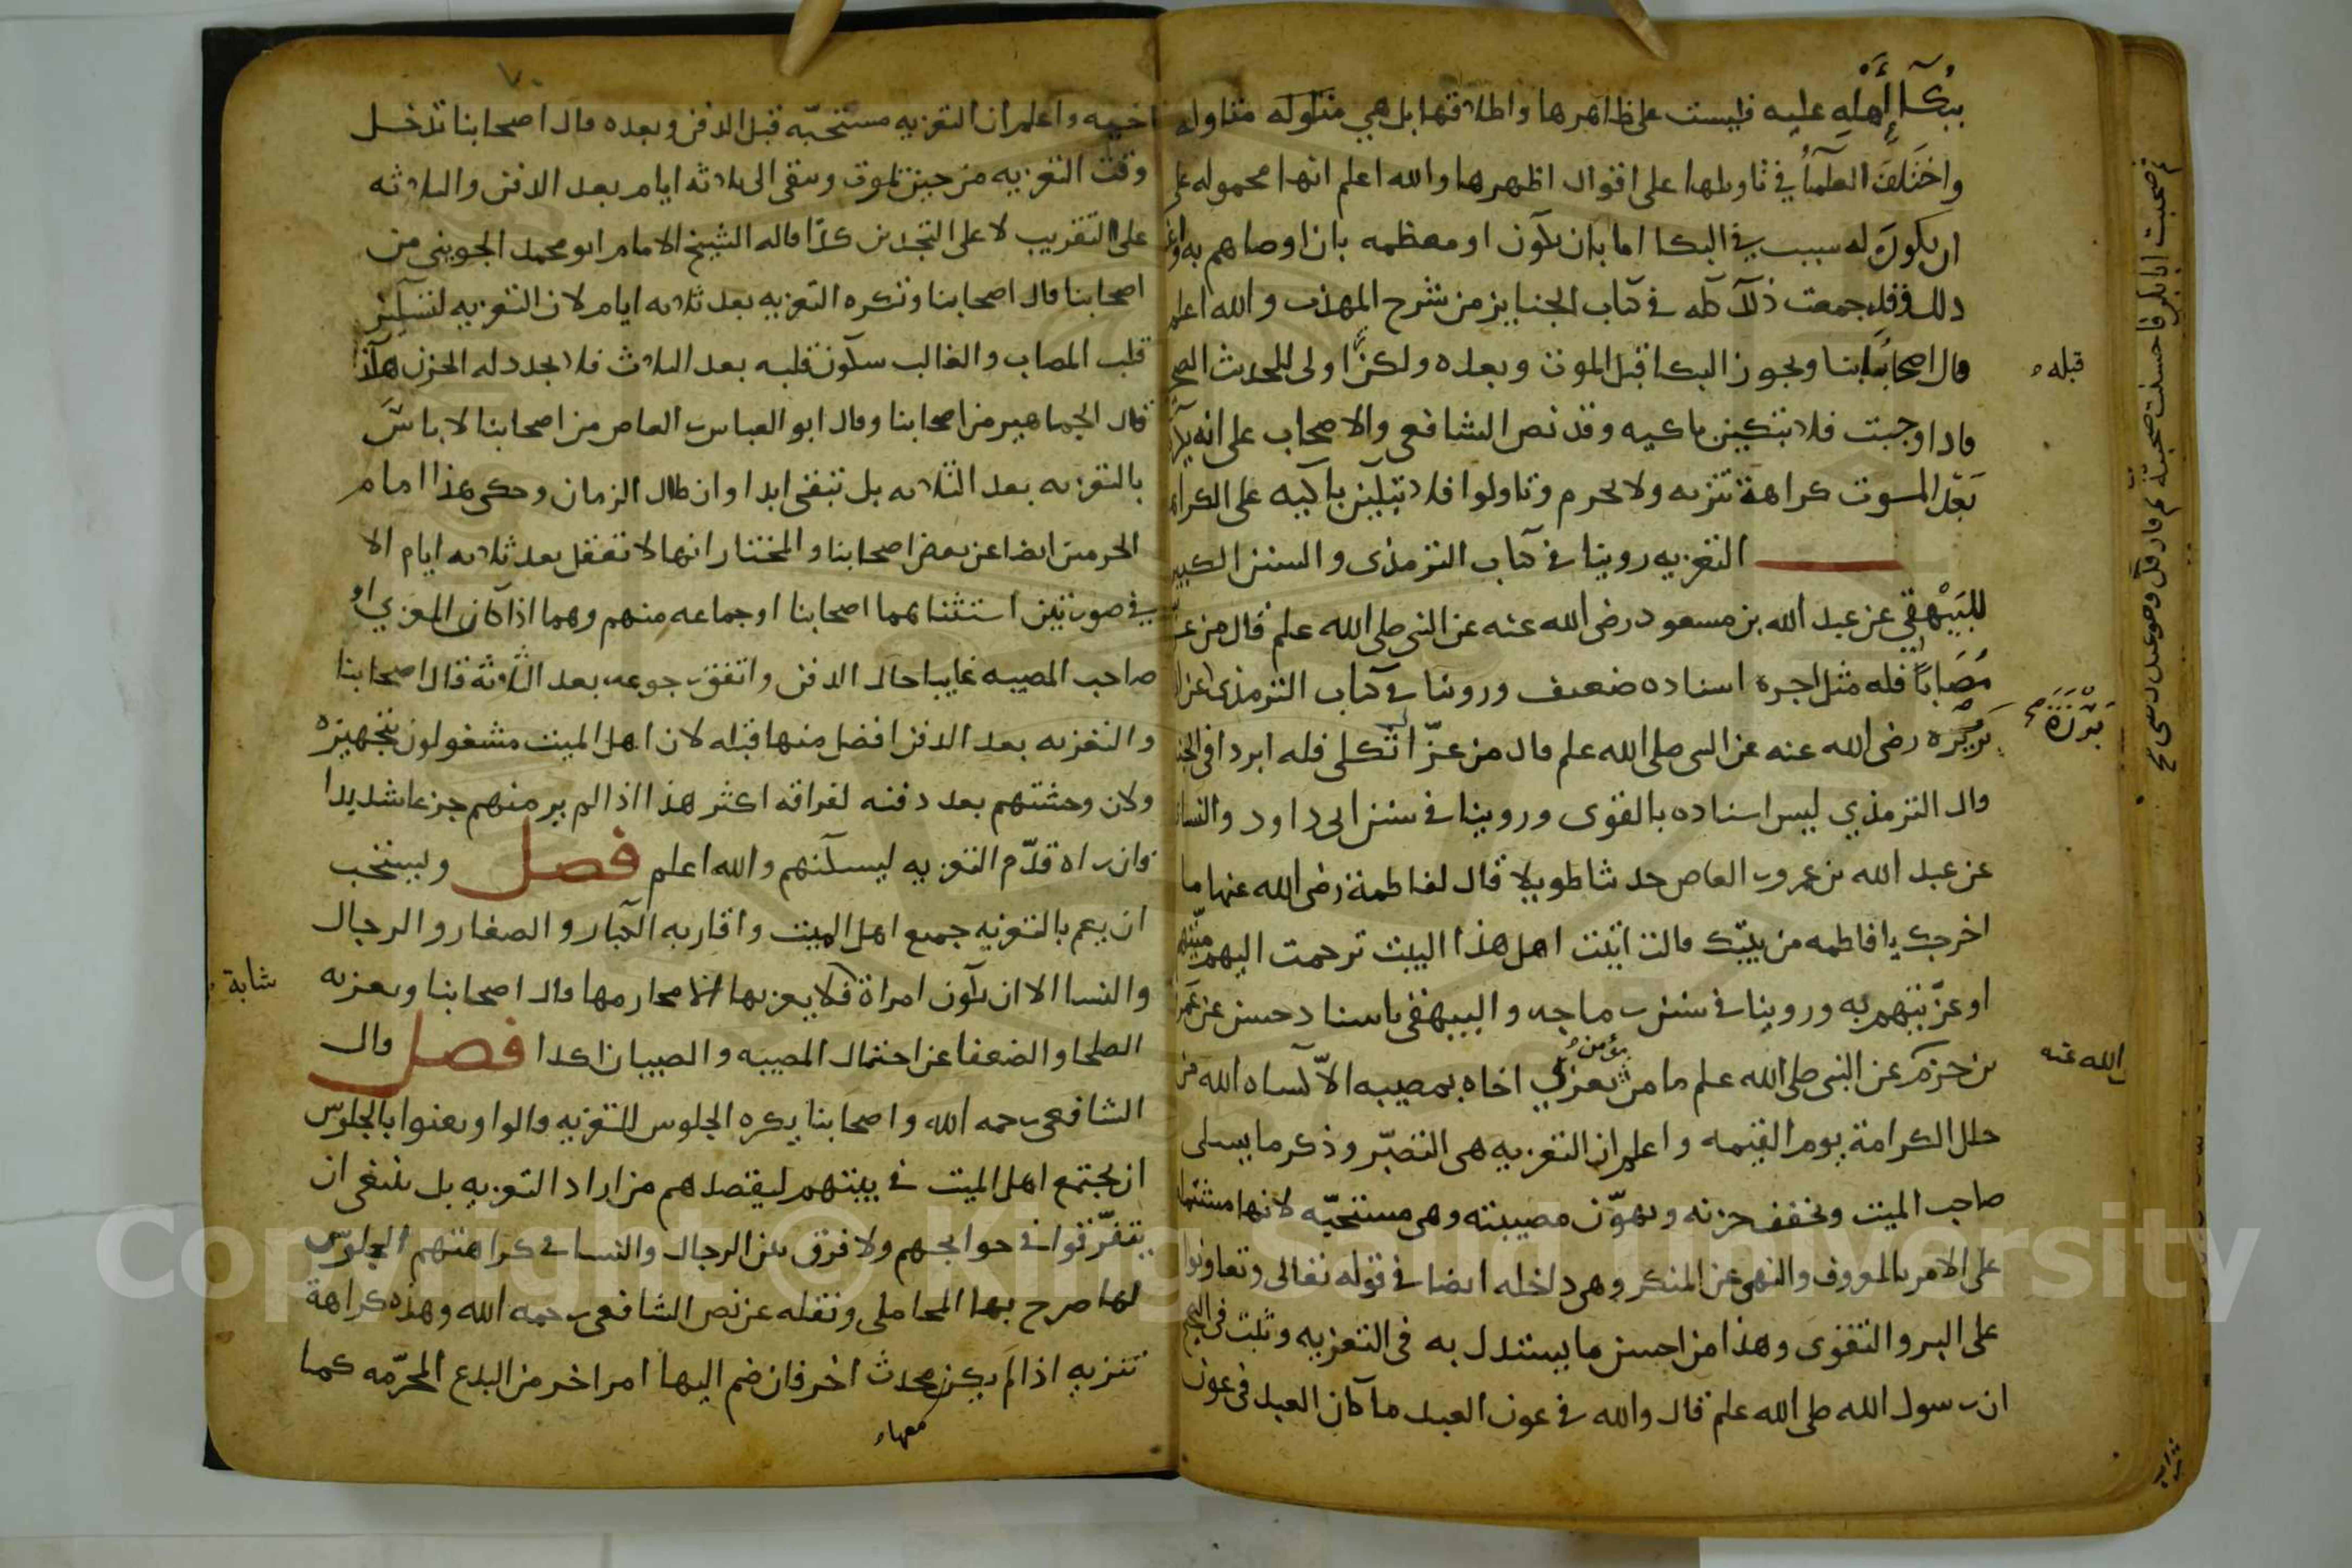 ببكآ أهله عليه فليست على ظاهرها واطلاقها بل هي متاوله
واختلف العلمآ في تاويلها على اقوال اظهرها والله اعلم انها محموله على
ان يكون له سبب في البكا اما بان يكون او معظمه بان اوصاهم به او غير
ذلك وقد جمعت ذلك كله في كتاب الجنايز من شرح المهذب والله اعلم
قال اصحابنا ويجوز البكا قبل الموت وبعده ولكن اولى للحديث الصح
قبله
فاذا وجبت فلا تبكين باكيه وقد نص الشافعي والاصحاب على انه يكره
بعد الموت كراهة تنزيه ولا يحرم وتاولوا فلا تبكين باكيه على الكراهه
التعزيه روينا في كتاب الترمذي والسنن الكبير
للبيهقي عن عبد الله بن مسعود رضى الله عنه عن النبي صلى الله علم قال من عزى
مصابا فله مثل اجره اسناده ضعيف وروينا في كتاب الترمذي
برزة رضى الله عنه عن النبي صلى الله علم قال من عزّا ثكلى فله ابردا في الجنه
برزة
قال الترمذي ليس اسناده بالقوى وروينا في سنن ابى داود والنسا
عن عبد الله بن عمرو بن العاص حديثا طويلا قال لفاطمة رضى الله عنها ما
اخرجك يا فاطمه من بيتك قالت اتيت اهل هذا البيت ترحمت اليهم ميتهم
او عزّيتهم به وروينا في سنن بن ماجه والبيهقي باسناد حسن عن عمرو
بن حزم عن النبي صلى الله علم ما من مؤمن يعزي اخاه بمصيبه الاّ كساه الله من
الله عنه
حلل الكرامة يوم القيمه واعلم ان التعزيه هى التصبّر وذكر ما يسلى
صاحب الميت ويخفف حزنه ويهوّن مصيبته وهى مستحبّه لانها مشتمله
على الامر بالمعروف والنهى عن المنكر وهى داخله ايضا في قوله تعالى وتعاونوا
على البر والتقوى وهذا من احسن ما يستدل به فى التعزيه وثبت فى الصح
ان رسول الله صلى الله علم قال والله في عون العبد ما كان العبد فى عون
اخيه واعلم ان التعزيه مستحبّه قبل الدفن وبعده قال اصحابنا تدخل
وقت التعزيه من حين يموت ويبقى الى ثلاثه ايام بعد الدفن والثلاثه
على التقريب لا على التحديد كذا قاله الشيخ الامام ابو محمد الجوينى من
اصحابنا قال اصحابنا وتكره التعزيه بعد ثلاثه ايام لان التعزيه لتسكين
قلب المصاب والغالب سكون قلبه بعد الثلاث فلا يجدد له الحزن هكذا
قال الجماهير من اصحابنا وقال ابو العباس بن القاص من اصحابنا لا باس
بالتعزيه بعد الثلاثه بل تبقى ابدا وان طال الزمان وحكى هذا امام
الحرمين ايضا عن بعض اصحابنا والمختار انها لا تفعل بعد ثلاثه ايام الا
في صورتين استثناهما اصحابنا او جماعه منهم وهما اذا كان المعزي او
صاحب المصيبه غايبا حال الدفن واتفق رجوعه بعد الثلاثة قال اصحابنا
والتعزيه بعد الدفن افضل منها قبله لان اهل الميت مشغولون بتجهيزه
ولان وحشتهم بعد دفنه لفراقه اكثر هذا اذا لم ير منهم جزعا شديدا
فان راه قدّم التعزيه ليسكنهم والله اعلم فصل ويستحب
ان يعم بالتعزيه جميع اهل الميت واقاربه الكبار والصغار والرجال
والنسا الا ان تكون امراة فلا يعزيها الا محارمها قال اصحابنا وتعزيه
شابة
الصلحا والضعفا عن احتمال المصيبه والصبيان اكد فصل قال
الشافعي رحمه الله واصحابنا يكره الجلوس للتعزيه قالوا ويعنوا بالجلوس
ان يجتمع اهل الميت في بيتهم ليقصدهم من اراد التعزيه بل ينبغى ان
يتفرّقوا في حوايجهم ولا فرق بين الرجال والنسا في كراهتهم الجلوس
لها صرح بها المحاملى ونقله عن نص الشافعي رحمه الله وهذه كراهة
تنزيه اذا لم يكن محدث اخر فان ضم اليها امر اخر من البدع المحرّمه كما
معها
Copyright © King Saud University